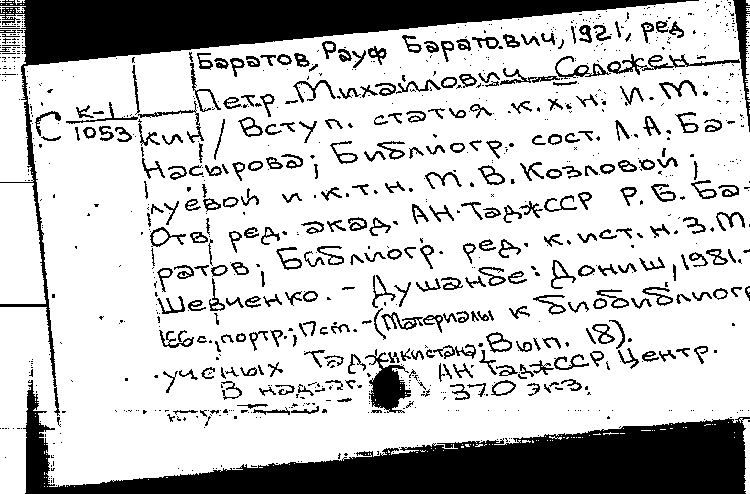 Баратов, Рауф Баратович, 1921, ред.
Петр Михайлович Соложен-
С К-1
1053
кин / Вступ. статья к.х.н. И.М.
Насырова; Библиогр. сост. Л.А. Ба-
луевой и к.т.н. М.В. Козловой;
Отв. ред. акад. АН ТаджССР Р.Б. Ба-
ратов; Библиогр. ред. к.ист.н. З.М.
Шевченко. - Душанбе: Дониш, 1981. -
166 с., портр.; 17 cm. - (Материалы к биобиблиогр
ученых Таджикистана; Вып. 18).
В надзаг. АН ТаджССР, Центр.
370 экз.